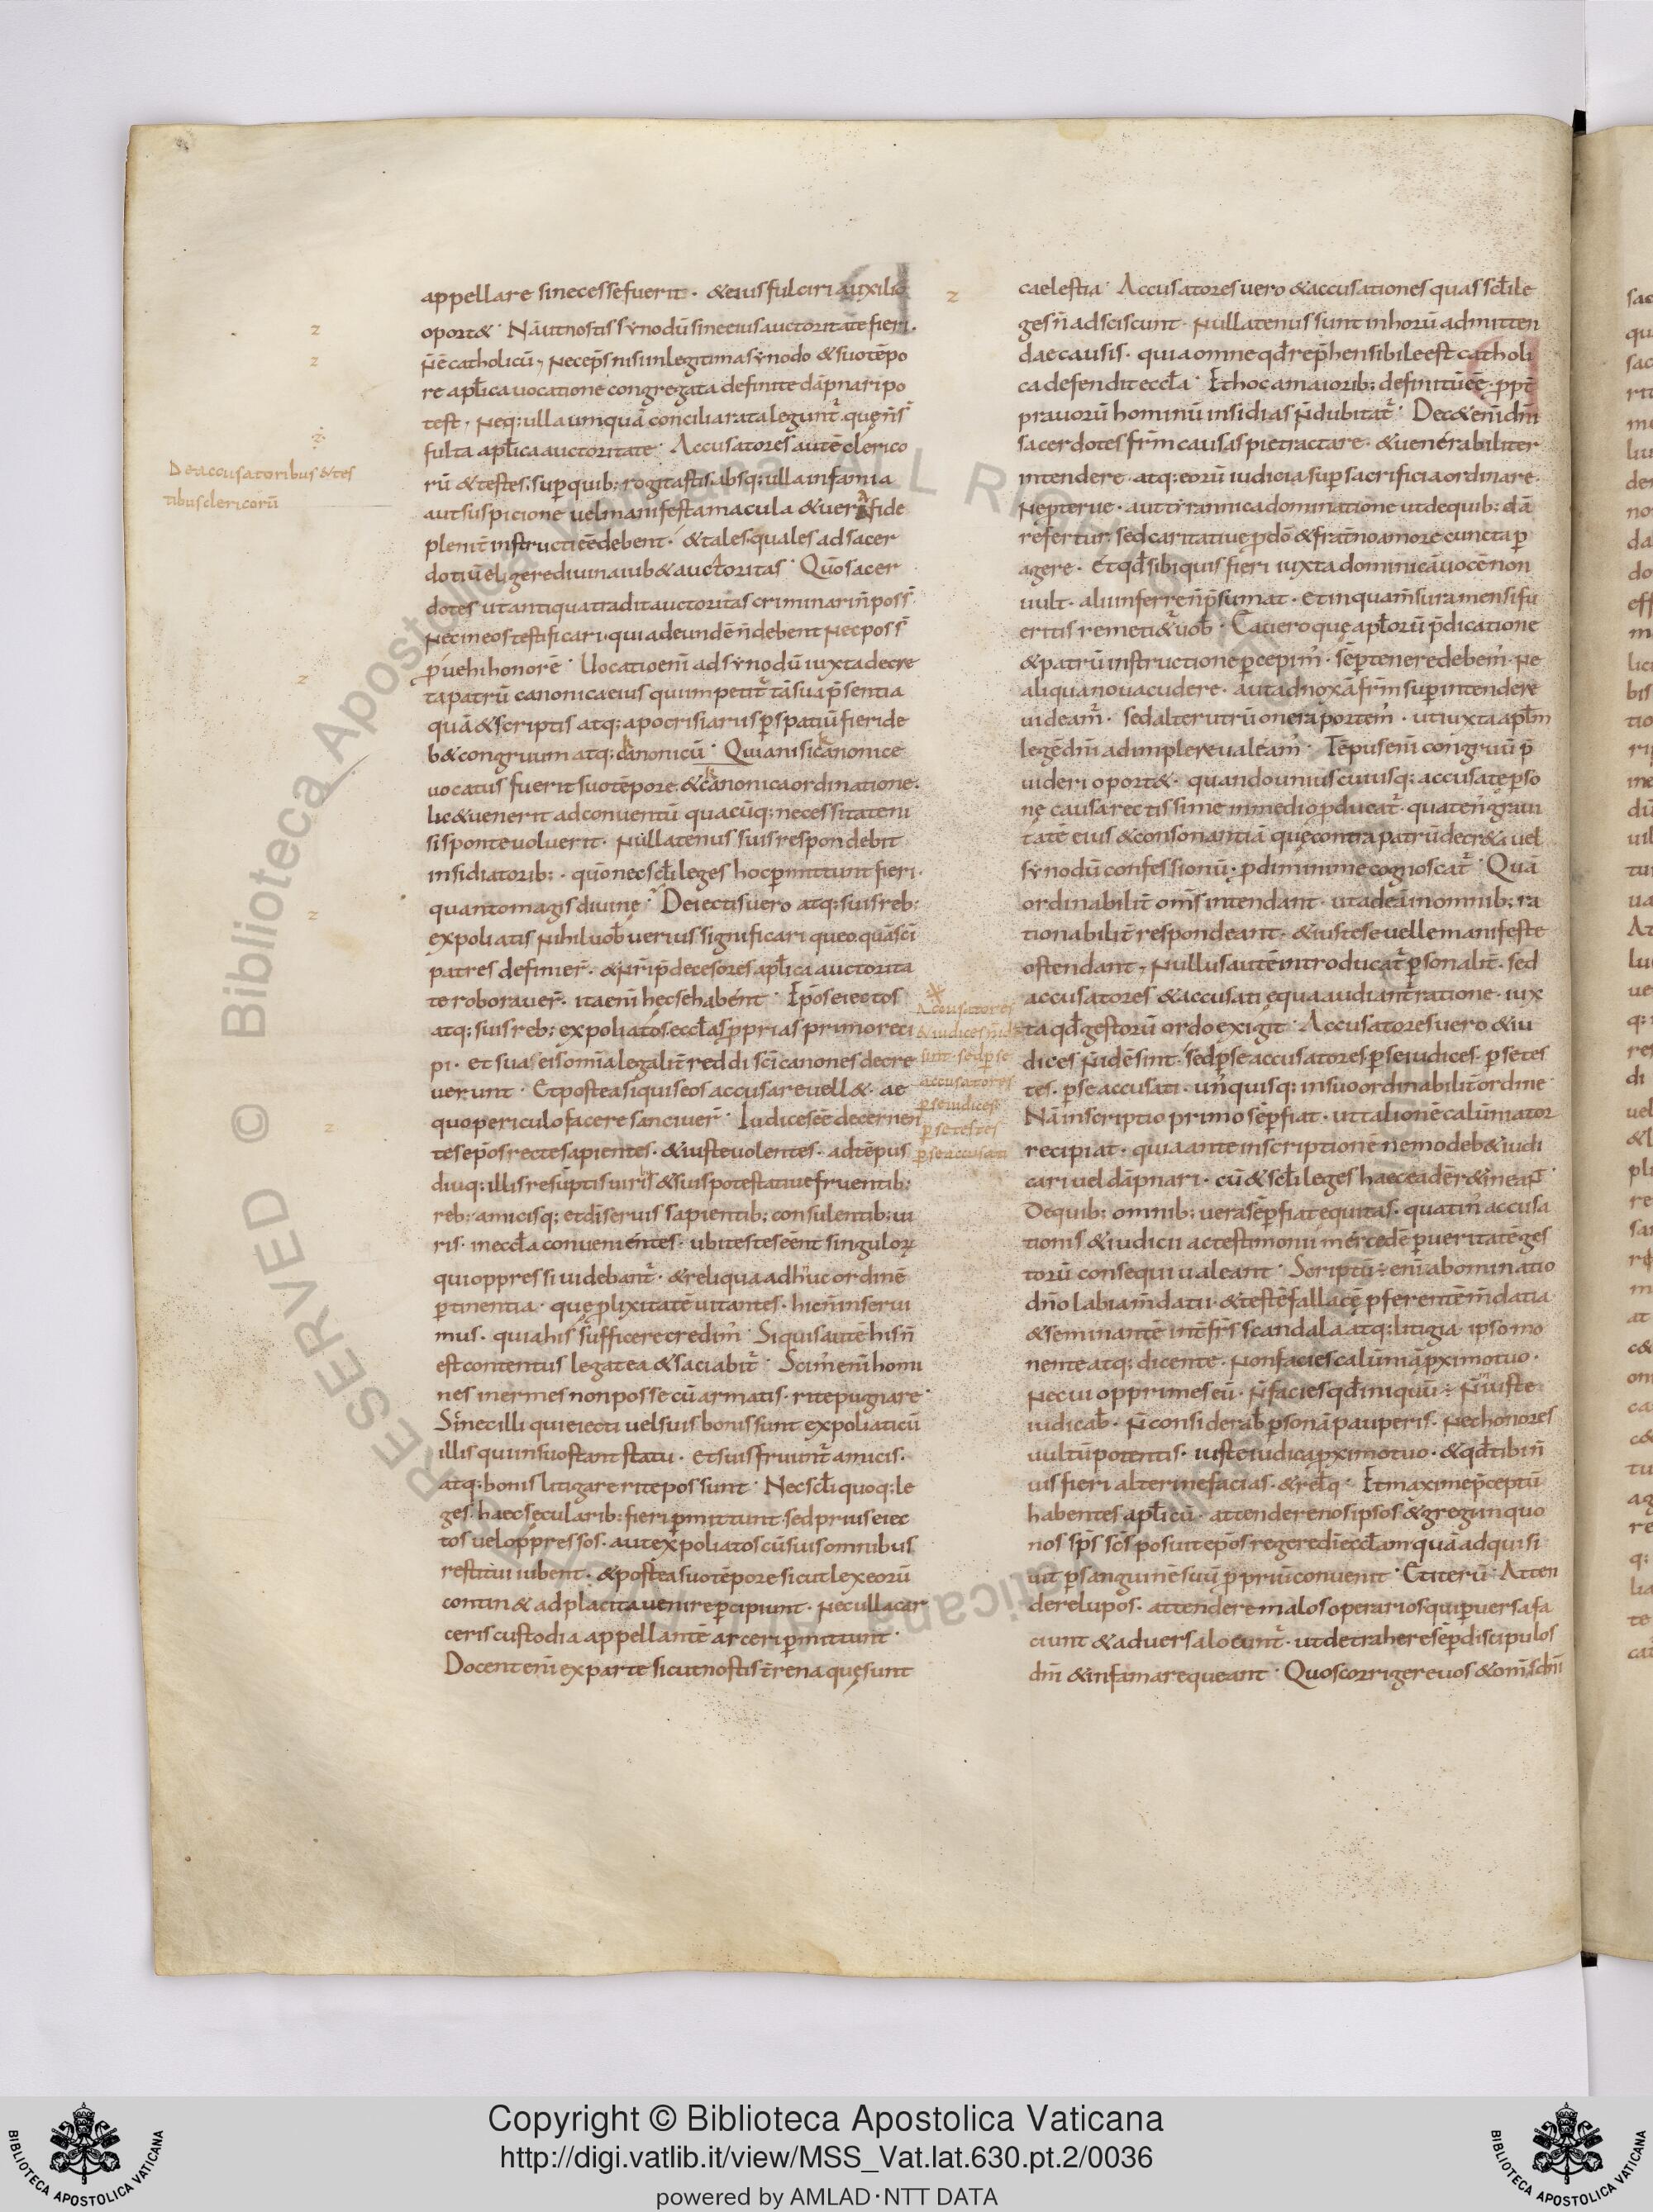 appellare si necesse fuerit · &eius fulciri auxilio
oport& · Nā ut nostis synodū sine eius auctoritate fieri ·
n̄ ē catholicū, Nec ep̄s nisi in legitima synodo & suo tēpo
re apl̄ica uocatione congregata definite dāpnari po
test, Neq; ulla umquā concilia rata legunt̄ quę n̄ s̄
fulta apl̄ica auctoritate · Accusatores autē clerico
rū & testes, sup quib; rogitastis, absq; ulla infamia
aut suspicione uel manifesta macula & uera fide
plenit̄ instructi eē debent · & tales quales ad sacer
dotiū eligere diuina iub& auctoritas · Qūo sacer
dotes ut antiqua tradit auctoritas criminari n̄ poss̄
Nec in eos testificari, qui ad eundē n̄ debent Nec poss̄
puehi honorē · Uocatio enī ad synodū iuxta decre
ta patrū canonica eius qui impetit̄ tā sua p̄sentia
quā & scriptis atq; apocrisiariis p spatiū fieri de
b& congruum atq; canonicū · Quia nisi canonice
uocatus fuerit suo tēpore & canonica ordinatione ·
lic& uenerit ad conuentū quacūq; necessitate ni
si sponte uoluerit · Nullatenus suis respondebit
insidiatorib; · qūo nec scl̄i leges hoc pmittunt fieri ·
quanto magis diuine · Deiectis uero atq; suis reb;
expoliatis Nihil uob̄ uerius significari queo quā sc̄i
patres definier̄ · & n̄ri p̄decesores apl̄ica auctorita
te roborauer̄ · ita enī hęc se habent · Ep̄os eiectos
atq; suis reb; expoliatos, eccl̄as pprias primo reci
pi · et sua eis om̄ia legalit̄ reddi sc̄i canones decre
uerunt · Et postea si quis eos accusare uell& · ae
quo periculo facere sanciuer̄ · Iudices eē decernen
tes ep̄os recte sapientes · & iuste uolentes · ad tēpus
diuq; illis resūptis uirib; & suis potestatiue fruentib;
reb; amicisq; et dī seruis sapientib; consulentib; ui
ris · in eccl̄a conuenientes · ubi testes eēnt singuloꝝ
qui oppressi uidebant̄ · & reliqua ad huc ordinē
ptinentia · quę plixitatē uitantes · hic n̄ inserui
mus · quia his sufficere credim̄ · Si quis autē his n̄
est contentus legat ea & saciabit̄ · Scim̄ enī homi
nes inermes non posse cū armatis · rite pugnare ·
Sīc nec illi qui eiecti uel suis bonis sunt expoliati cū
illis qui in suo stant statu · Et suis fruunt̄ amicis ·
atq; bonis litigare rite possunt · Nec scl̄i quoq; le
ges haec secularib; fieri pmittunt sed prius eiec
tos uel oppressos · aut expoliatos cū suis omnibus
restitui iubent · & postea suo tēpore sicut lex eorū
contin& ad placita uenire pcipiunt · Nec ulla car
ceris custodia appellantē arceri pmittunt ·
Docent enī ex parte sicut nostis t̄rena quę sunt
De accusatoribus & tes
tibus clericorū
z
z
z
z
z
z
z
Accusatores
& iudices n̄ idē
sint · sed p se
accusatores
p se iudices
p se testes
p se accusati
caelestia · Accusatores uero & accusationes quas scl̄i le
ges n̄ adsciscunt · Nullatenus sunt in horū admitten
dae causis · quia omne qd̄ rep̄hensibile est catholi
ca defendit eccl̄a · Et hoc a maiorib; definitū eē · ppt̄
prauorū hominū insidias N̄ dubitat̄ · Dec& enī dn̄i
sacerdotes fr̄m causas pie tractare · & uenerabiliter
intendere · atq; eorū iudicia sup sacrificia ordinare ·
Nec pterue · aut tirannica dominatione ut de quib; dā
refertur, sed caritatiue p dō & frat̄no amore cuncta p
agere · Et qd̄ sibi quis fieri iuxta dominicā uocē non
uult · alii inferre n̄ p̄sumat · Et in qua m̄sura mensi fu
eritis remeti&̄ uob̄ · Cauero quę apl̄orū p̄dicatione
& patrū instructione pcepim̄ · sēp tenere debem̄ · Ne
aliqua noua cudere · aut ad noxā fr̄m sup intendere
uideam̄ · sed alterutrū onera portem̄ · ut iuxta apl̄m
legē dn̄i adimplere ualeam̄ · Tēpus enī congruū p̄
uideri oport& · quando uniuscuiusq; accusatę pso
nę causa rectissime in medio pducat̄ · quaten̄ graui
tatē eius & consonantiā quę contra patrū decr&a uel
synodū confessionū · pdi minime cognoscat̄ · Quā
ordinabilit̄ om̄s intendant · ut ad eā in omnib; ra
tionabilit̄ respondeant · & iuste se uelle manifeste
ostendant · Nullus autē introducat̄ psonalit̄ · sed
accusatores & accusati ęqua audiant̄ ratione · iux
ta qd̄ gestorū ordo exigit · Accusatores uero & iu
dices N̄ idē sint · sed p se accusatores p se iudices · p se tes
tes · p se accusati · un̄quisq; in suo ordinabilit̄ ordine
Nā inscriptio primo sēp fiat · ut talionē calūmiator
recipiat · quia ante inscriptionē nemo deb& iudi
cari uel dāpnari · cū & scl̄i leges haec eadē r&ineant̄ ·
De quib; omnib; uera sēp fiat equitas · quatin̄ accusa
tionis & iudicii ac testimonii mercedē p ueritatē ges
torū consequi ualeant · Scriptū ÷ enī abominatio
dn̄o labia m̄datii · & testē fallacē pferentē m̄datia
& seminantē int̄ fr̄s scandala atq; litigia · ipso mo
nente atq; dicente · Non facies calūmiā pximo tuo ·
Nec ui opprimes eū · N̄ facies qd̄ iniquū ÷ N̄ iniuste
iudicab̄ · N̄ considerab̄ psonā pauperis · Nec honores
uultū potentis · iuste iudica pximo tuo · & qd̄ tibi n̄
uis fieri alteri ne facias · & rel̄q · Et maxime p̄ceptū
habentes apl̄icū · attendere nos ipsos & gregi in quo
nos sp̄s sc̄s posuit ep̄os regere dī eccl̄am quā adquisi
uit p sanguinē suū ppriū conuenit · Et iterū · Atten
dere lupos · attendere malos operarios qui puersa fa
ciunt & aduersa locunt̄ · ut detrahere sēp discipulos
dn̄i & infamare queant · Quos corrigere uos & om̄s dn̄i
Copyright © Biblioteca Apostolica Vaticana
http://digi.vatlib.it/view/MSS_Vat.lat.630.pt.2/0036
powered by AMLAD·NTT DATA
BIBLIOTECA APOSTOLICA VATICANA
BIBLIOTECA APOSTOLICA VATICANA